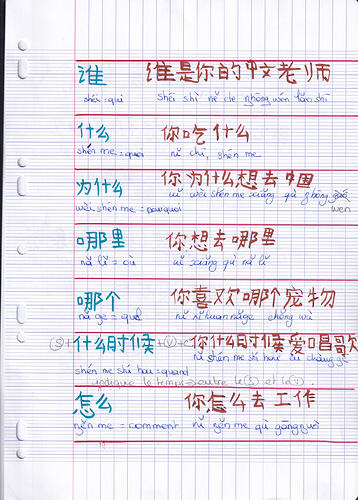 谁 谁是你的中文老师
shéi = qui shéi shì nǐ de zhōng wén lǎo shī
什么 你吃什么
shén me = quoi nǐ chī, shén me
为什么 你为什么想去中国
wèi shén me = pourquoi nǐ wèi shén me xiǎng qù zhōng
wen
哪里 你想去哪里
nǎ lǐ = où nǐ xiǎng qù nǎ lǐ
哪个 你喜欢哪个宠物
nǎ ge = quel nǐ xǐ huan nǎ ge chǒng wù
(S) + 什么时候 + (V) + c 你什么时候爱唱歌
nǐ shén me shí hou ài chàng ge
shén me shí hou = quand
indique le temps → entre le (S) et le (V).
怎么 你怎么去工作
zěn me = comment nǐ zěn me qù gōng